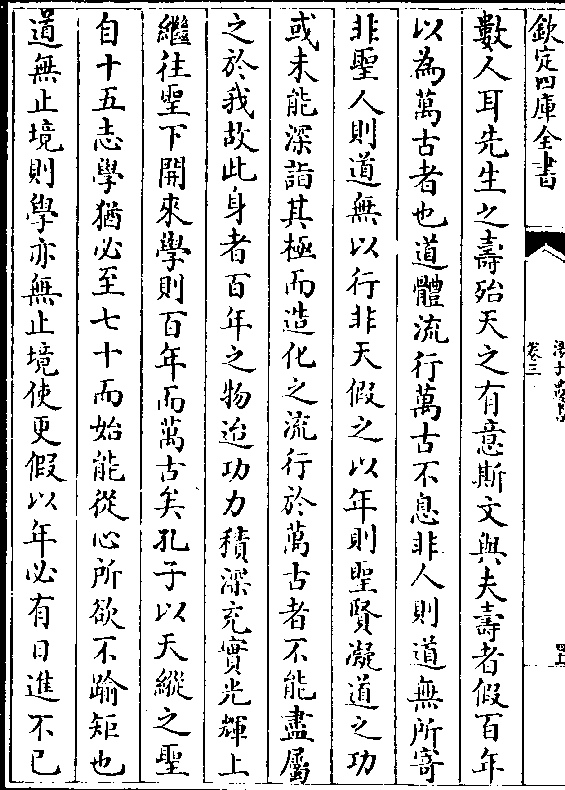 欽定四庫全書
卷三
數人耳先生之壽殆天之有意斯文與夫壽者假百年
以為萬古者也道體流行萬古不息非人則道無所寄
非聖人則道無以行非天假之以年則聖賢凝道之功
或未能深詣其極而造化之流行於萬古者不能盡屬
之於我故此身者百年之物迨功力積深充實光輝上
繼往聖下開來學則百年而萬古矣孔子以天縱之聖
自十五志學猶必至七十而始能從心所欲不踰矩也
道無止境則學亦無止境使更假以年必有日進不已